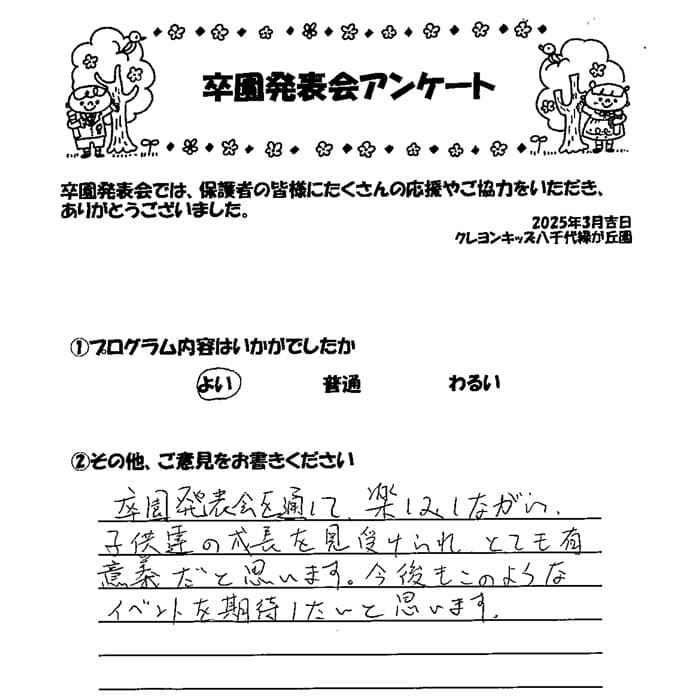 卒園発表会アンケート
卒園発表会では、保護者の皆様にたくさんの応援やご協力をいただき、
ありがとうございました。
2025年3月吉日
クレヨンキッズ八千代緑が丘園
①プログラム内容はいかがでしたか
よい 普通 わるい
②その他、ご意見をお書きください
卒園発表会を通して、楽しみしながら、
子供達の成長を見受けられ、とても有
意義だと思います。今後もこのような
イベントを期待したいと思います。